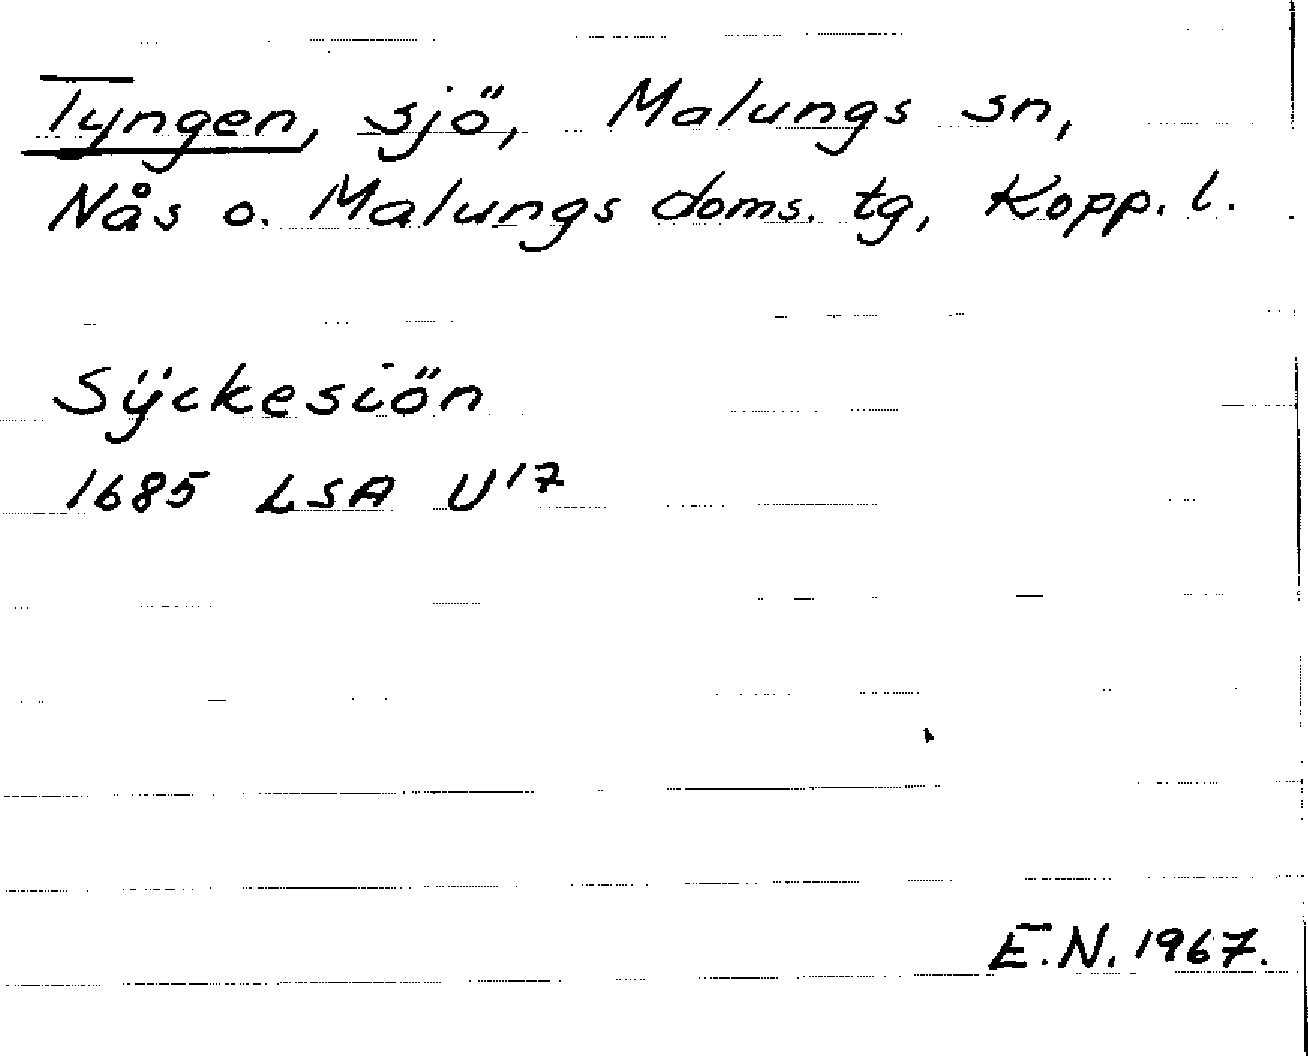 Tyngen, sjö, Malungs sn,
Nås o. Malungs doms. tg, Kopp. l.
Sÿckesiön
1685 LSA U17
E.N. 1967.